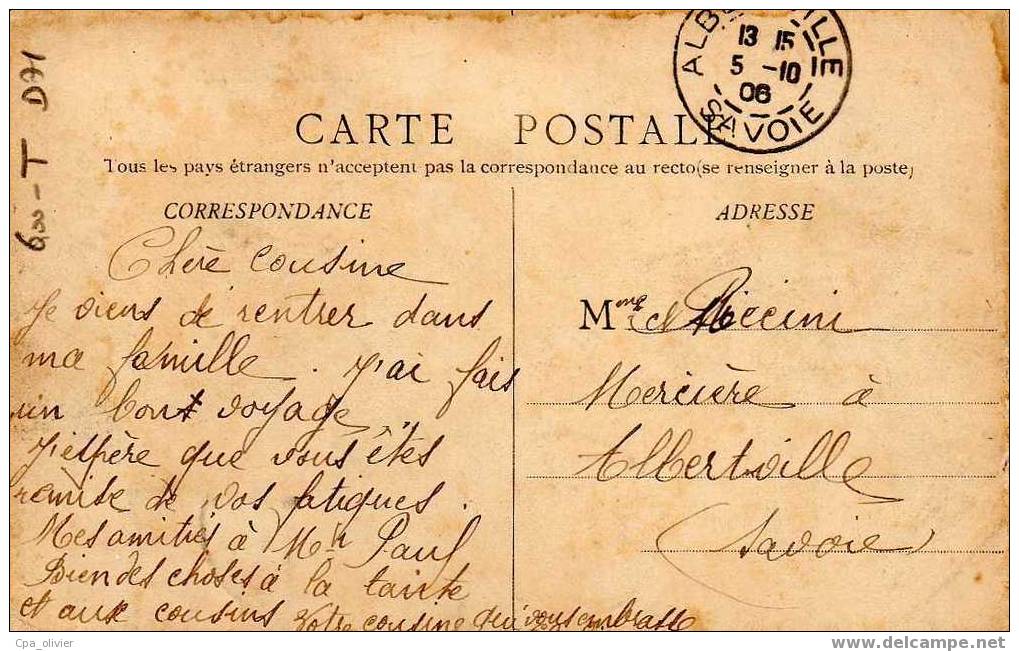 ALBERTVILLE
13 15
5 -10
06
SAVOIE
63 - T DA1
CARTE POSTALE
Tous les pays étrangers n'acceptent pas la correspondance au recto (se renseigner à la poste)
CORRESPONDANCE
Chère Cousine
Je viens de rentrer dans
ma famille. J'ai fais
un bont voyage
J'espère que vous êtes
remise de vos fatigues.
Mes amitiés à Mr Paul
Bien des choses à la tante
et aux cousins Votre cousine qui vous embrasse
ADRESSE
Mme Riccini
Mercière à
Albertville
(Savoie)
Cpa_olivier
www.delcampe.net